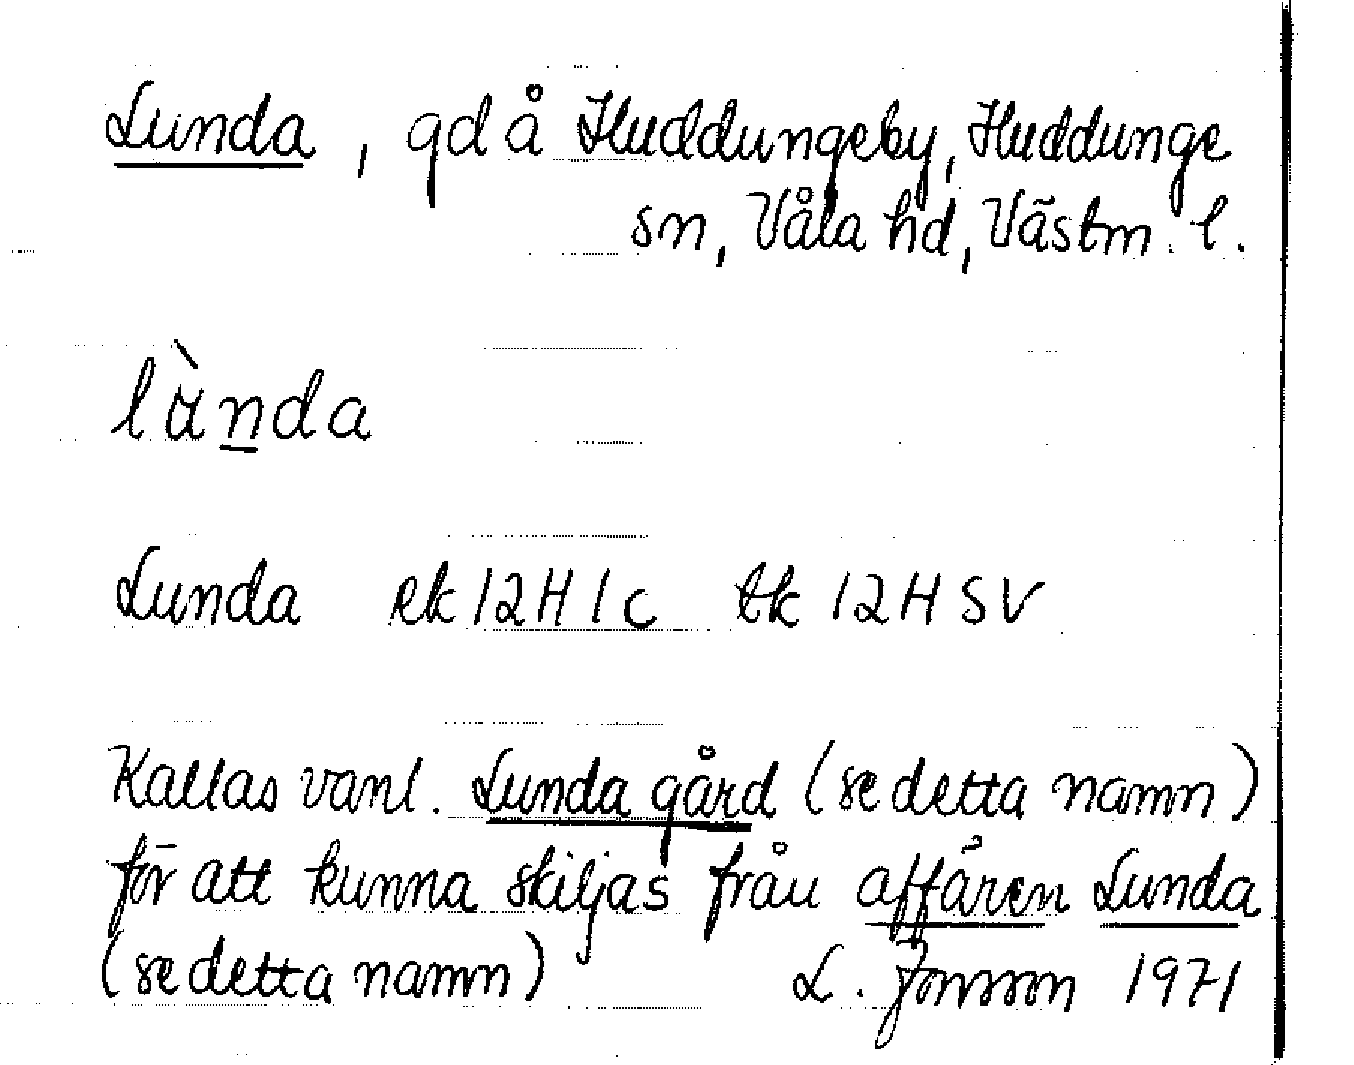 Lunda, gd å Huddungeby, Huddunge
sn, Våla hd, Västm. l.
lànda
Lunda ek 12H 1c tk 12H SV
Kallas vanl. Lunda gård (se detta namn)
för att kunna skiljas från affären Lunda
(se detta namn) L. Jonsson 1971